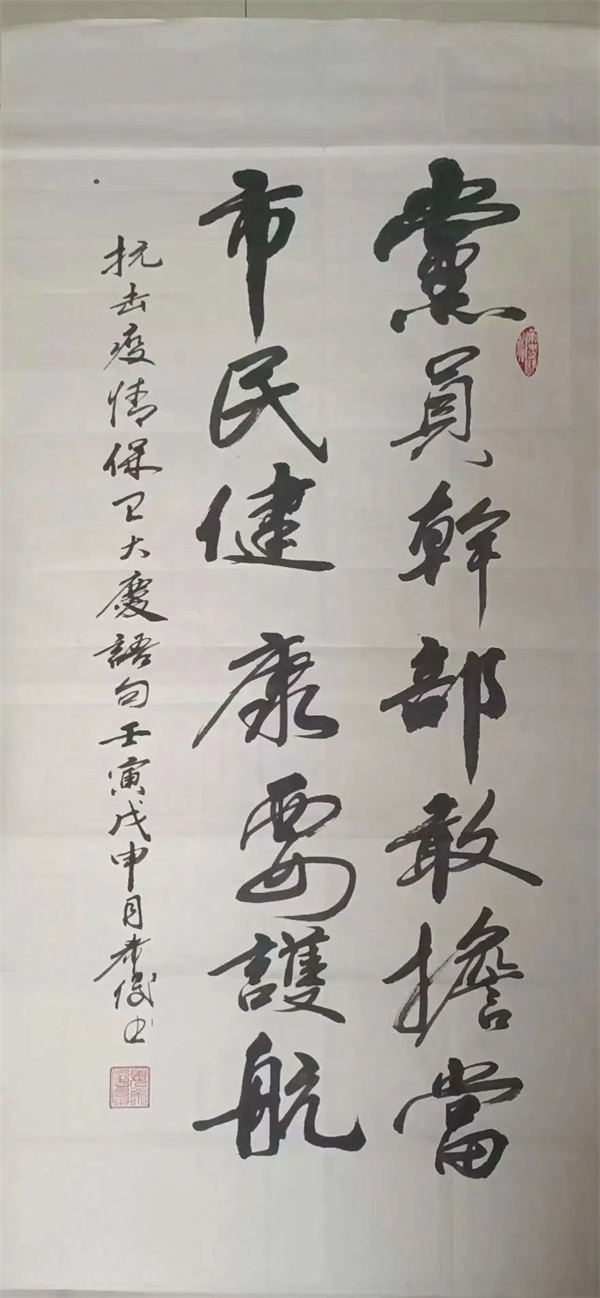 黨員幹部敢擔當
市民健康要護航
抗击疫情保卫大慶語句壬寅戊申月書